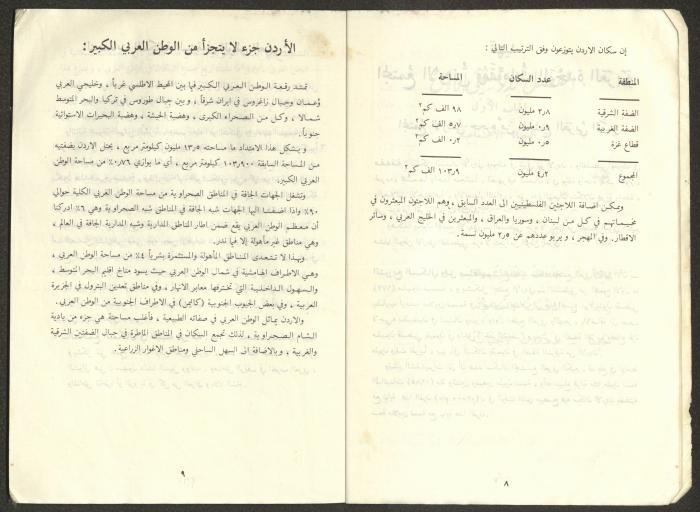 إن سكان الاردن يتوزعون وفق الترتيب التالي :
المنطقة عدد السكان المساحة
الضفة الشرقية ٢٫٨ مليون ٩٨ الف كم٢
الضفة الغربية ٠٫٩ مليون ٥٫٧ الف كم٢
قطاع غزة ٠٫٥ مليون ٠٫٢ الف كم٢
المجموع ٤٫٢ مليون ١٠٣٫٩ الف كم٢
ويمكن اضافة اللاجئين الفلسطينيين الى العدد السابق ، وهم اللاجئون المبعثرون في
مخيماتهم في كل من لبنان ، وسوريا والعراق ، والمبعثرين في الخليج العربي ، وسائر
الاقطار. وفي المهجر ، و يربو عددهم عن ٢٫٥ مليون نسمة.
٨
الأردن جزء لا يتجزأ من الوطن العربي الكبير :
تمتد رقعة الوطن العربي الكبير فيما بين المحيط الاطلسي غرباً ، وخليجي العربي
وعُمان وجبال زاغروس في ايران شرقاً ، و بين جبال طوروس في تركيا والبحر المتوسط
شمالا ، وكل من الصحراء الكبرى ، وهضبة الحبشة ، وهضبة البحيرات الاستوائية
جنوباً.
و يشكل هذا الامتداد ما مساحته ١٣٫٥ مليون كيلومتر مربع ، يحتل الاردن بضفتيه
من المساحة السابقة ١٠٣٫٩٠٠ كيلومتر مربع ، أي ما يوازي ٠٫٧٦٪ من مساحة الوطن
العربي الكبير.
وتشغل الجهات الجافة في المناطق الصحراوية من مساحة الوطن العربي الكلية حوالي
٩٠٪ واذا اضفنا اليها الجهات شبه الجافة في المناطق شبه الصحراوية وهي ٦٪ ادركنا
أن معظم الوطن العربي يقع ضمن اطار المناطق المدارية وشبه المدارية الجافة في العالم ،
وهي مناطق غير مأهولة إلا فيما ندر.
وبهذا لا تتعدى المناطق المأهولة والمستثمرة بشرياً ٤٪ من مساحة الوطن العربي ،
وهي الاطراف الهامشية في شمال الوطن العربي حيث يسود مناخ اقليم البحر المتوسط ،
والسهول الداخلية التي تخترقها معابر الانهار ، وفي مناطق تعدين البترول في الجزيرة
العربية ، وفي بعض الجيوب الجنوبية (كاليمن) في الاطراف الجنوبية من الوطن العربي.
والاردن يماثل الوطن العربي في صفاته الطبيعية ، فأغلب مساحته هي جزء من بادية
الشام الصحراوية ، لذلك تجمع السكان في المناطق الماطرة في جبال الضفتين الشرقية
والغربية ، و بالاضافة الى السهل الساحلي ومناطق الاغوار الزراعية.
٩